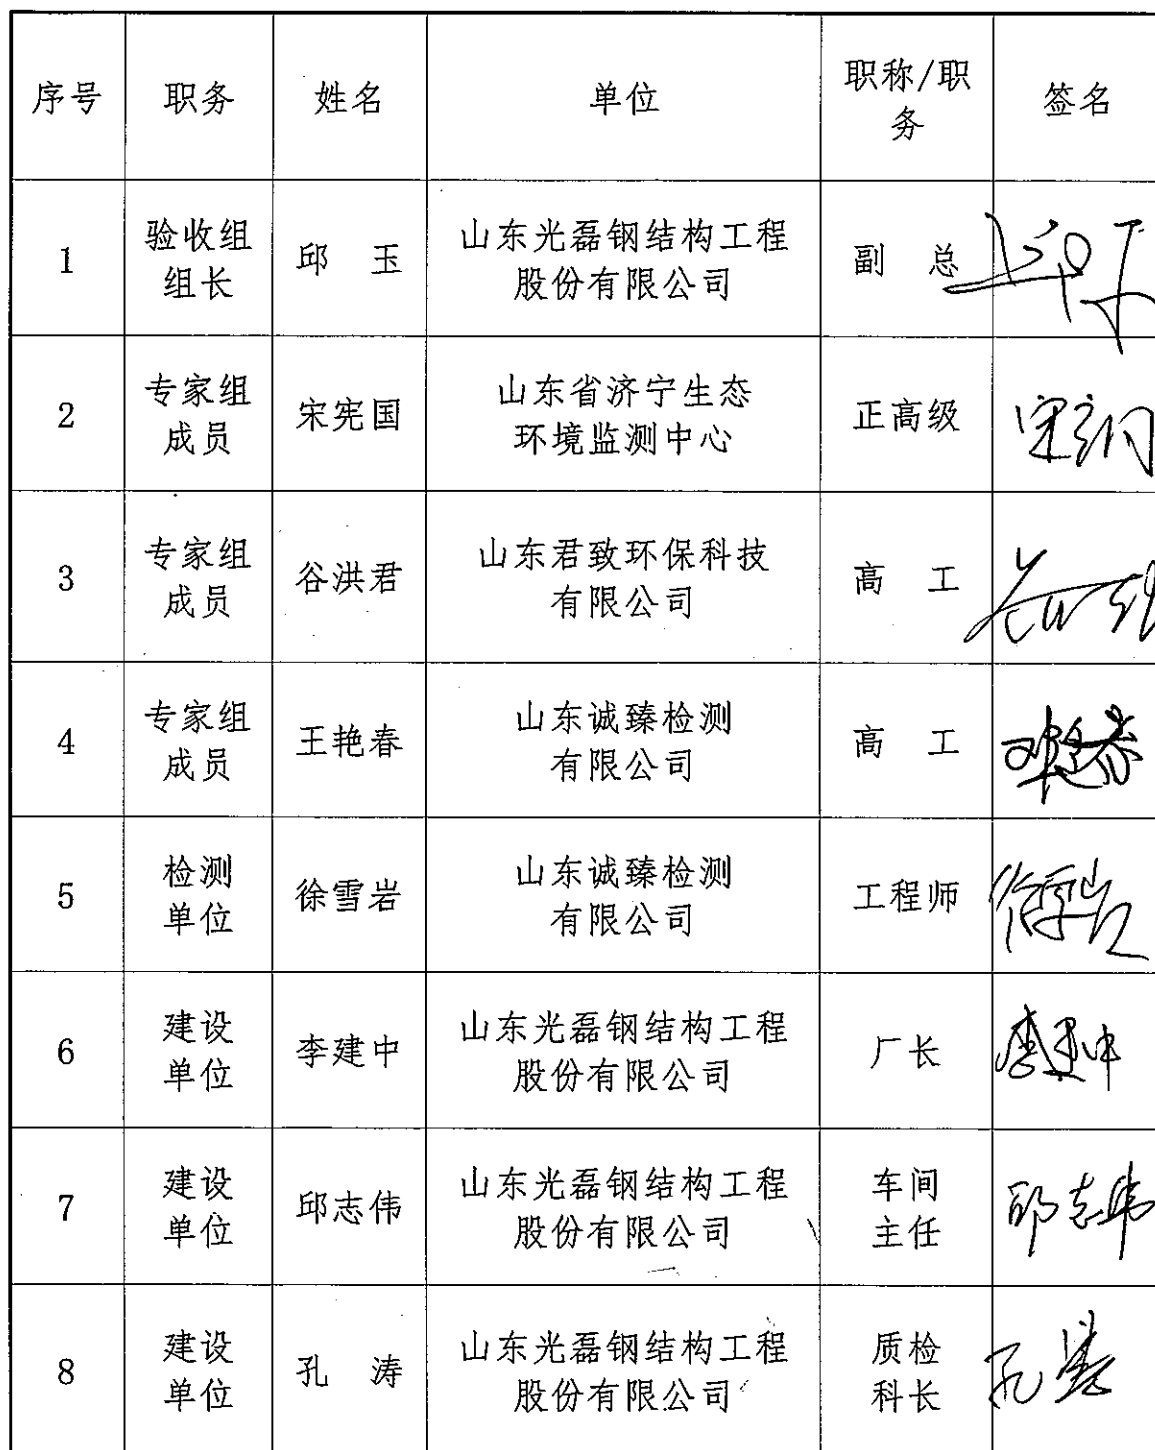 序号 职务 姓名 单位 职称/职务 签名
1 验收组组长 邱 玉 山东光磊钢结构工程股份有限公司 副 总
2 专家组成员 宋宪国 山东省济宁生态环境监测中心 正高级
3 专家组成员 谷洪君 山东君致环保科技有限公司 高 工
4 专家组成员 王艳春 山东诚臻检测有限公司 高 工 王艳春
5 检测单位 徐雪岩 山东诚臻检测有限公司 工程师 徐雪岩
6 建设单位 李建中 山东光磊钢结构工程股份有限公司 厂长 李建中
7 建设单位 邱志伟 山东光磊钢结构工程股份有限公司 车间主任 邱志伟
8 建设单位 孔 涛 山东光磊钢结构工程股份有限公司 质检科长 孔涛